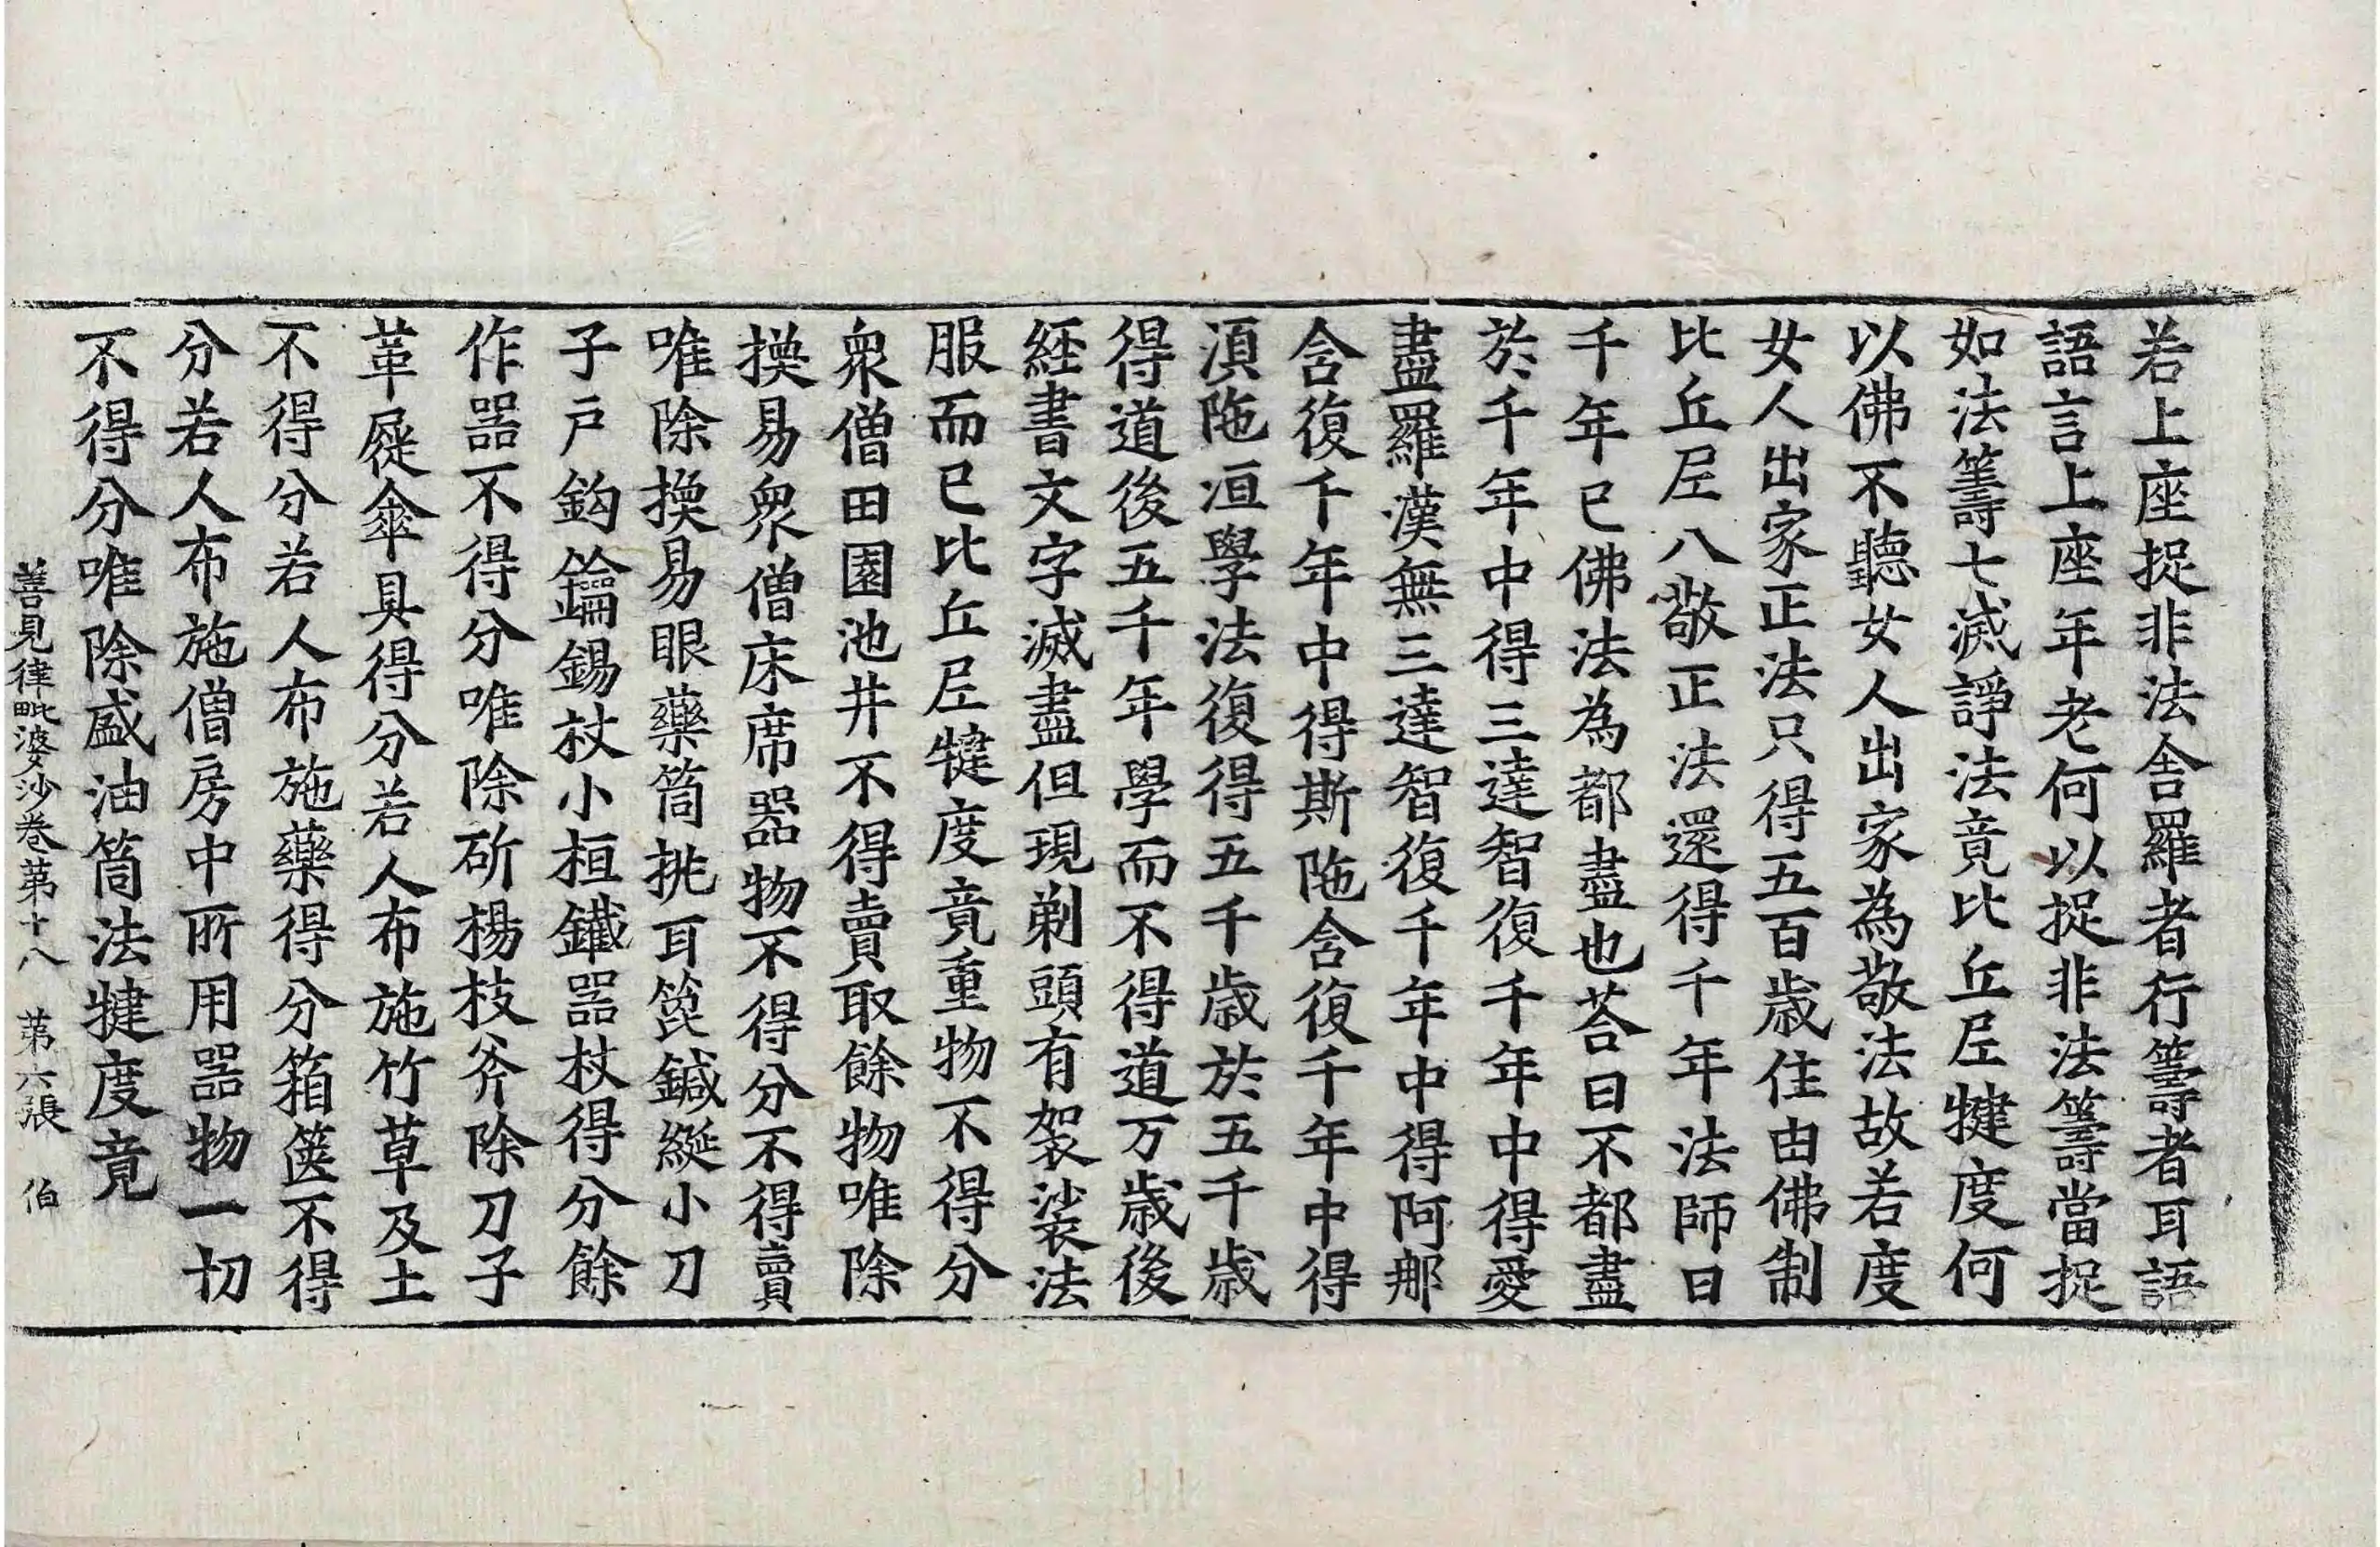 若上座捉非法舍羅者行籌者耳語
語言上座年老何以捉非法籌當捉
如法籌七滅諍法竟比丘尼犍度何
以佛不聽女人出家為敬法故若度
女人出家正法只得五百歲住由佛制
比丘尼八敬正法還得千年法師曰
千年已佛法為都盡也荅曰不都盡
於千年中得三達智復千年中得愛
盡羅漢無三達智復千年中得阿那
含復千年中得斯陁含復千年中得
湏陁洹學法復得五千歲於五千歲
得道後五千年學而不得道万歲後
経書文字滅盡但現剃頭有袈裟法
服而已比丘尼犍度竟重物不得分
衆僧田園池井不得賣取餘物唯除
換易衆僧床席器物不得分不得賣
唯除換易眼藥筒挑耳篦鍼綖小刀
子戶鈎鑰錫杖小桓鐵器杖得分餘
作器不得分唯除斫楊枝斧除刀子
革屣傘具得分若人布施竹草及土
不得分若人布施藥得分箱篋不得
分若人布施僧房中所用器物一切
不得分唯除盛油筒法犍度竟
善見律毗婆沙卷苐十八 苐六張 伯